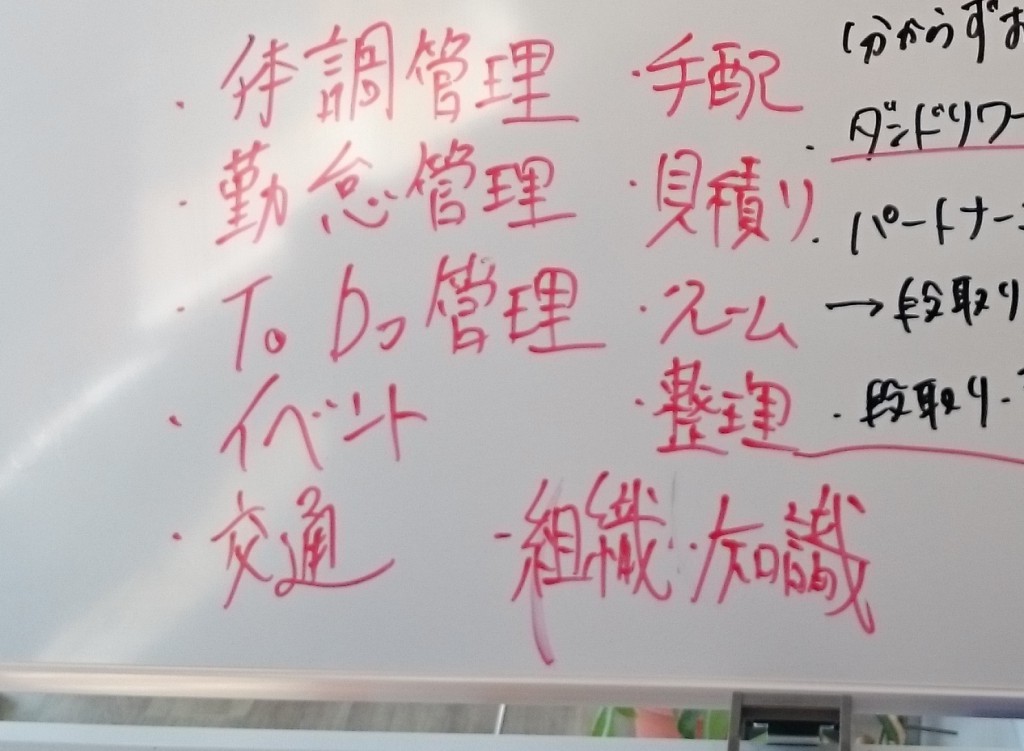 ・体調管理
・勤怠管理
・ToDo管理
・イベント
・交通
・手配
・見積り
・ズーム
・整理
・組織・知識
・ダンドリワー
・パートナー
→段取り
・段取り